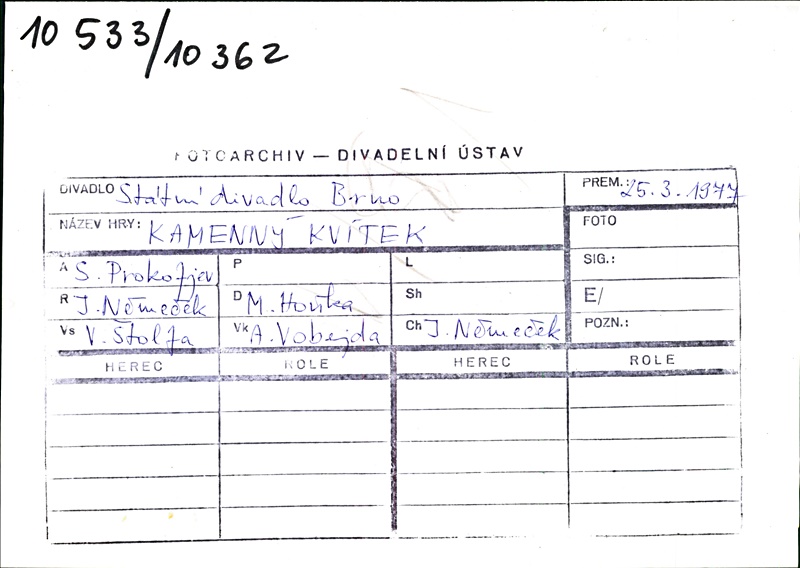 10 533/10 362
FOTOARCHIV — DIVADELNÍ ÚSTAV
DIVADLO Státní divadlo Brno
PREM.: 25.3.1977
NÁZEV HRY: KAMENNÝ KVÍTEK
FOTO
A S. Prokofjev P L
SIG.:
R J. Němeček D M. Houska Sh
E/
Vs V. Štolfa Vk A. Vobejda Ch J. Němeček
POZN.:
HEREC ROLE HEREC ROLE